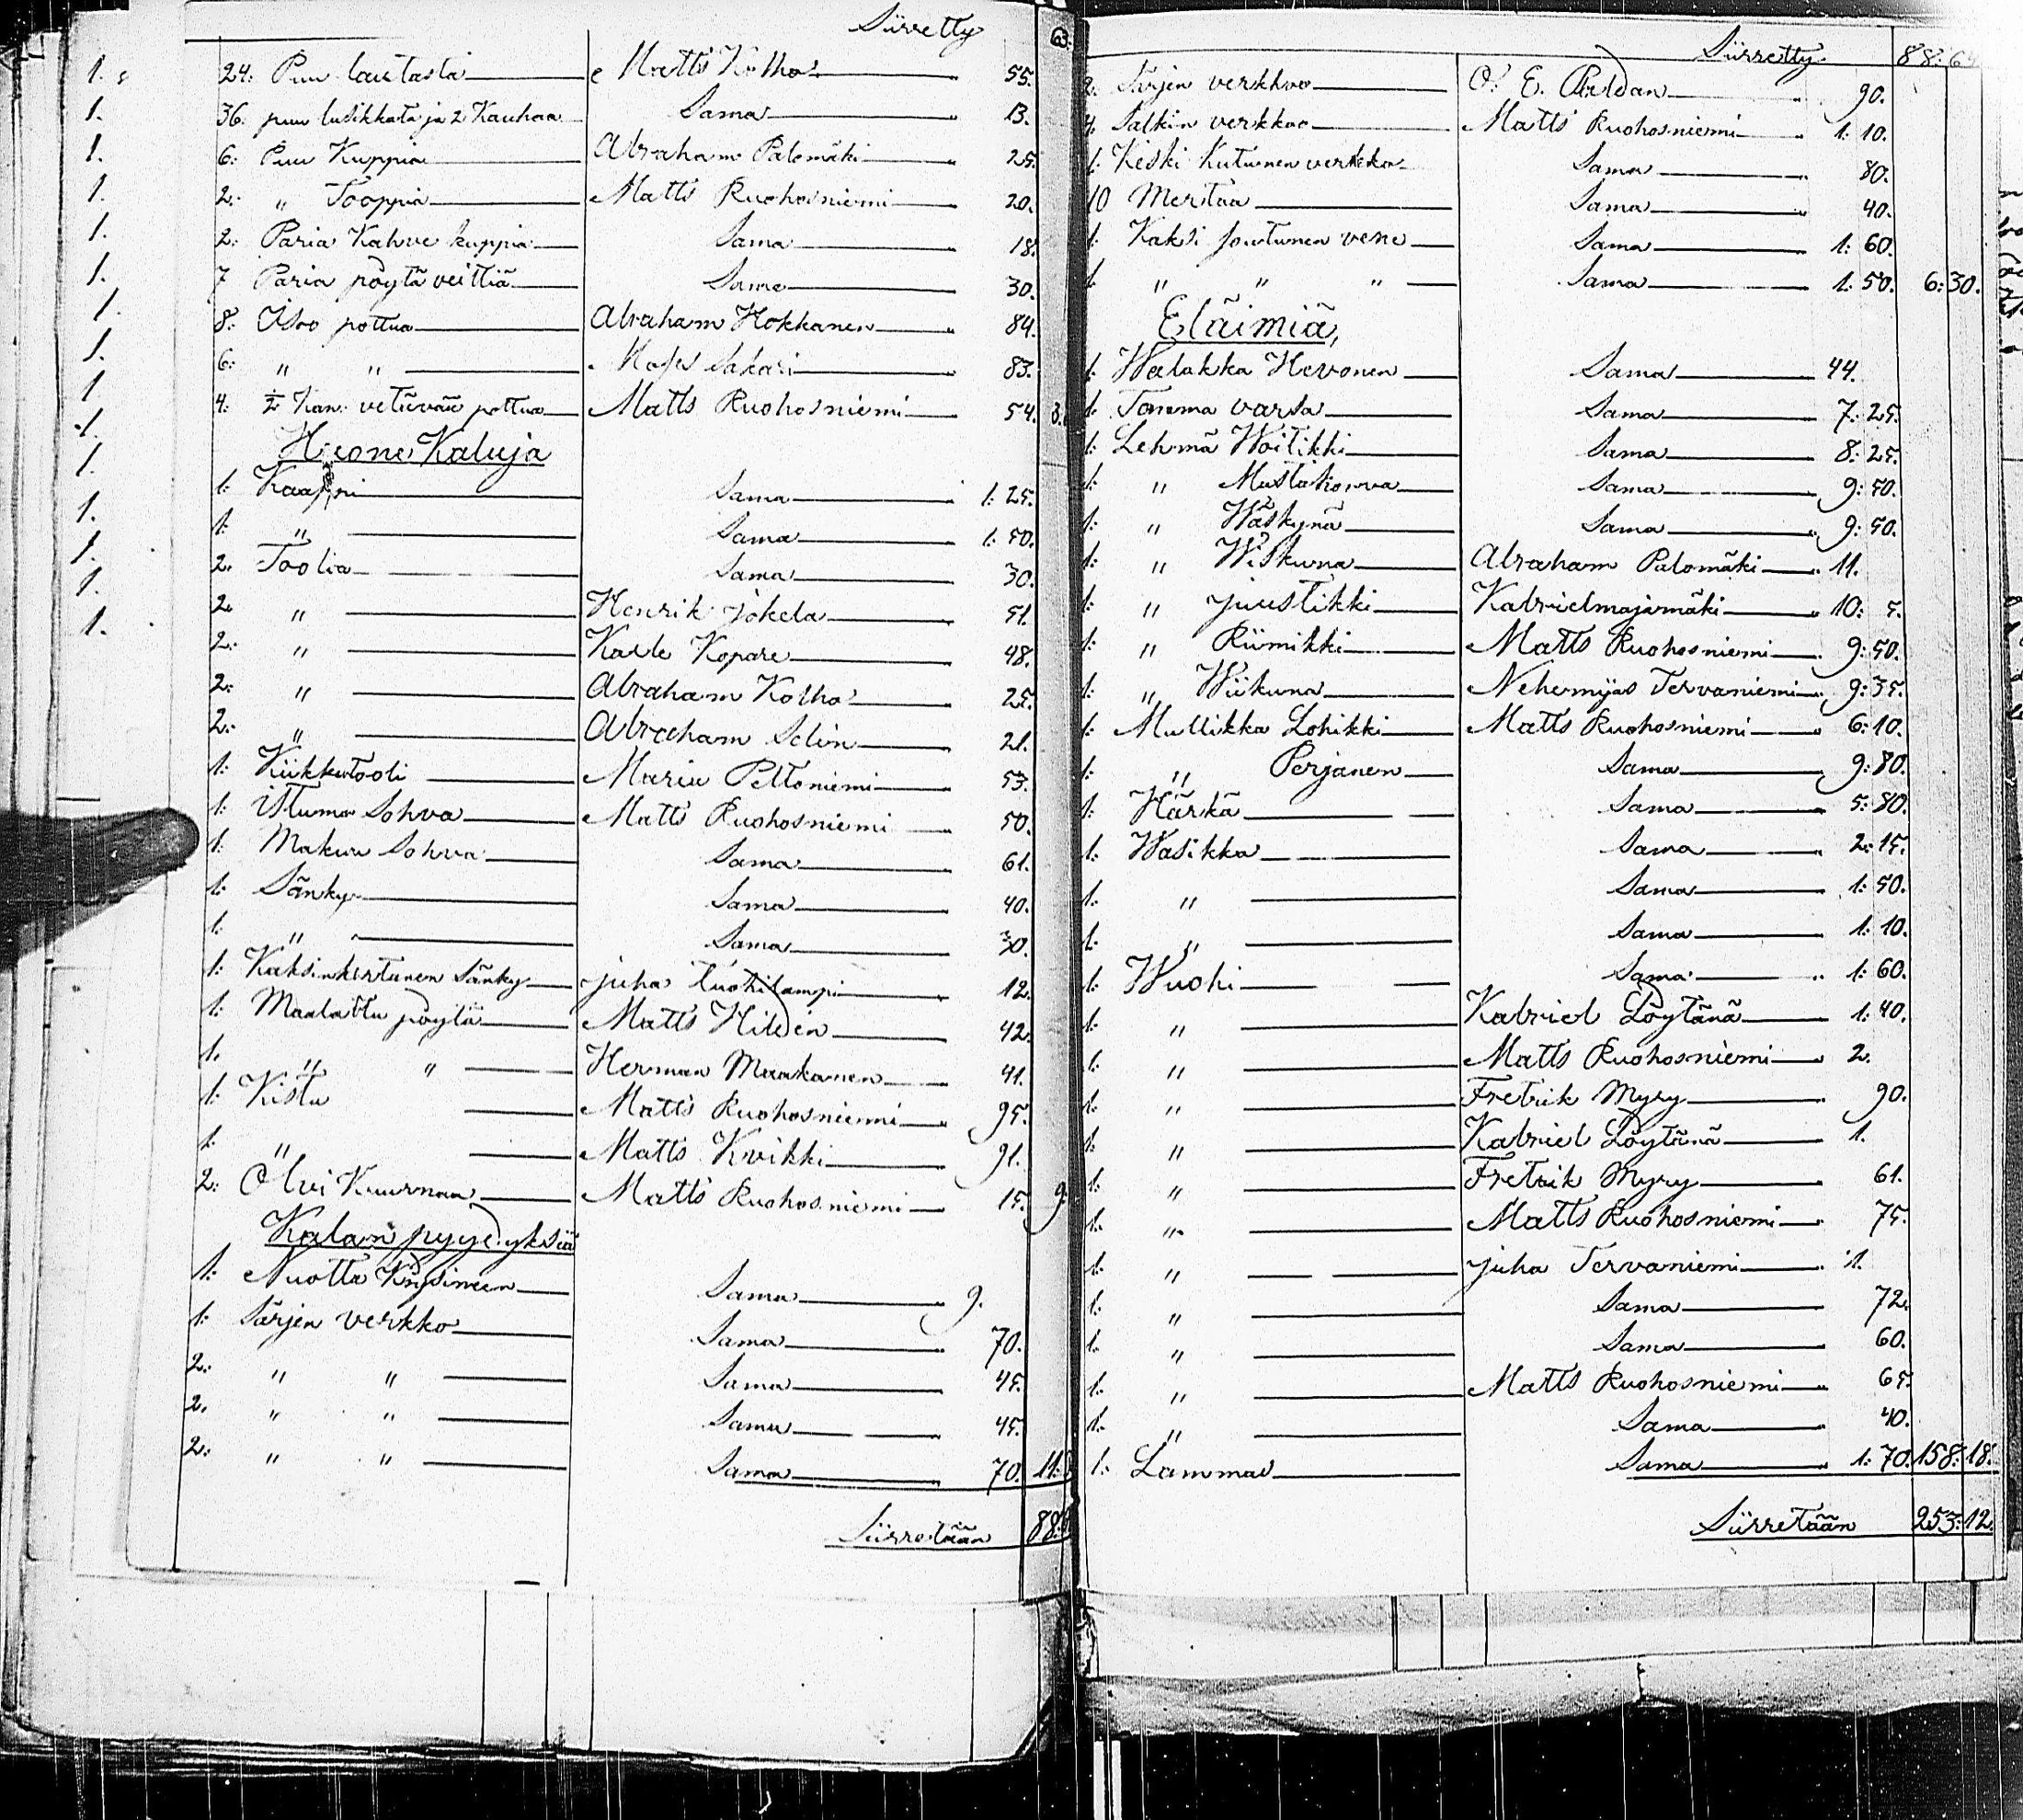 Siirretty 63:
24: Puu lautasta Matts Kotho 55.
36. puu lusikkata ja 2 Kauhaa Sama 13.
6: Puu Kuppia Abraham Palomäki 25.
2: " Tooppia Matts Ruohosniemi 20.
2: Paria Kahve kuppia Sama 18.
7 Paria pöytä veittiä Sama 30.
8: Isoo pottua Abraham Hokkanen 84.
6: " " Sakari 83.
4: ½ Kan: vetävää pottua Matts Ruohosniemi 54.
Huone Kaluja
1: Kaappi Sama 1: 25.
1: " Sama 1: 50.
2: Toolia Sama 30.
2. " Henrik Jokela 51.
2: " Kalle Kopare 48.
2: " Abraham Kotho 25.
2: " Abraham Selin 21.
1: Kiikkutooli Maria Peltoniemi 53.
1: Istuma Sohva Matts Ruohosniemi 50.
1: Makuu Sohva Sama 61.
1: Sänky Sama 40.
1: " Sama 30.
1: Kaksinkertanen Sänky Juha Tuohilampi 12.
1: Maalattu pöytä Matts Hildén 42.
1. " " Herman Maakanen 41.
1: Kistu Matts Ruohosniemi 95.
1: " Matts Kvikki 91.
2: Olvi Kuurnaa Matts Ruohosniemi 15. 9:
Kalan pyydyksiä
1: Nuotta Köysineen Sama 9.
1: Särjen verkko Sama 70.
2: " " Sama 45.
2. " " Sama 45.
2: " " Sama 70. 11:
Siirretään 88:
Siirretty 88: 64
2. Särjen verkkoo O. E. Paldan 90.
4. Salkin verkkoo Matts Ruohosniemi 1: 10.
1. Keski Kutunen verkko Sama 80.
10 Mertaa Sama 40.
1: Kaksi soutunen vene Sama 1: 60.
1. " " " Sama 1: 50. 6: 30.
Eläimiä,
1. Walakka Hevonen Sama 44.
1. Tamma varsa Sama 7: 25.
1: Lehmä Woitikki Sama 8: 25.
1: " Mustakorva Sama 9: 50.
1: " Wäskynä Sama 9: 50.
1: " Wiskuna Abraham Palomäki 11.
1: " Juustikki Kabrielmajamäki 10: 5.
1: " Riimikki Matts Ruohosniemi 9: 50.
1: " Wiikuna Nehemijas Tervaniemi 9: 35.
1. Mullikka Lohikki Matts Ruohosniemi 6: 10.
1: " Perjanen Sama 9: 80.
1: Härkä Sama 5: 80.
1: Wasikka Sama 2: 15.
1. " Sama 1: 50.
1. " Sama 1: 10.
1: Wuohi Sama 1: 60.
1: " Kabriel Löytänä 1: 40.
1: " Matts Ruohosniemi 2.
1: " Fretrik Myry 90.
1: " Kabriel Löytänä 1.
1: " Fretrik Myry 61.
1: " Matts Ruohosniemi 75.
1: " Juha Tervaniemi 1.
1: " Sama 72.
1: " Sama 60.
1: " Matts Ruohosniemi 65.
1. " Sama 40.
1: Lammas Sama 1: 70. 158: 18.
Siirretään 253: 12.